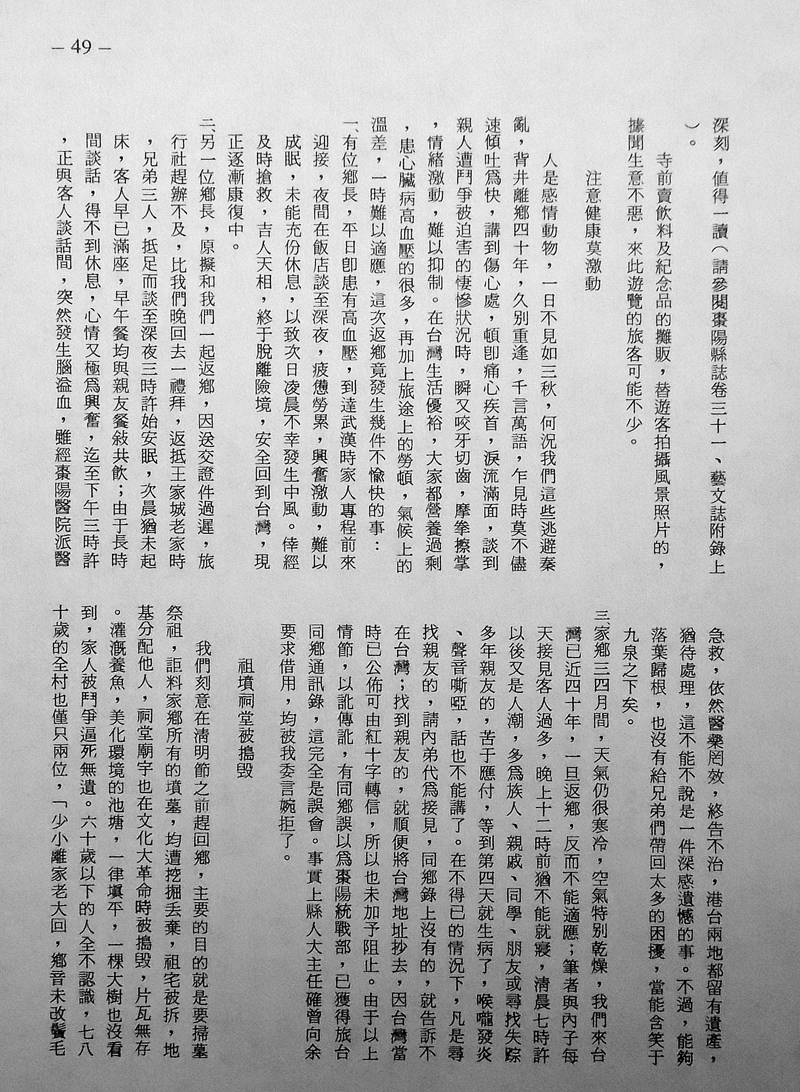 — 49 —
深刻，值得一讀（請參閱棗陽縣誌卷三十一、藝文誌附錄上
）。
寺前賣飲料及紀念品的攤販，替遊客拍攝風景照片的，
據聞生意不惡，來此遊覽的旅客可能不少。
注意健康莫激動
人是感情動物，一日不見如三秋，何況我們這些逃避秦
亂，背井離鄉四十年，久別重逢，千言萬語，乍見時莫不儘
速傾吐爲快，講到傷心處，頓卽痛心疾首，淚流滿面，談到
親人遭鬥爭被迫害的悽慘狀況時，瞬又咬牙切齒，摩拳擦掌
，情緒激動，難以抑制。在台灣生活優裕，大家都營養過剩
，患心臟病高血壓的很多，再加上旅途上的勞頓，氣候上的
溫差，一時難以適應，這次返鄉竟發生幾件不愉快的事：
一、有位鄉長，平日卽患有高血壓，到達武漢時家人專程前來
迎接，夜間在飯店談至深夜，疲憊勞累，興奮激動，難以
成眠，未能充份休息，以致次日凌晨不幸發生中風。倖經
及時搶救，吉人天相，終于脫離險境，安全回到台灣，現
正逐漸康復中。
二、另一位鄉長，原擬和我們一起返鄉，因送交證件過遲，旅
行社趕辦不及，比我們晚回去一禮拜，返抵王家城老家時
，兄弟三人，抵足而談至深夜三時許始安眠，次晨猶未起
床，客人早已滿座，早午餐均與親友餐敍共飲；由于長時
間談話，得不到休息，心情又極爲興奮，迄至下午三時許
，正與客人談話間，突然發生腦溢血，雖經棗陽醫院派醫
急救，依然醫藥罔效，終告不治，港台兩地都留有遺產，
猶待處理，這不能不說是一件深感遺憾的事。不過，能夠
落葉歸根，也沒有給兄弟們帶回太多的困擾，當能含笑于
九泉之下矣。
三、家鄉三四月間，天氣仍很寒冷，空氣特別乾燥，我們來台
灣已近四十年，一旦返鄉，反而不能適應；筆者與內子每
天接見客人過多，晚上十二時前猶不能就寢，清晨七時許
以後又是人潮，多爲族人、親戚、同學、朋友或尋找失踪
多年親友的，苦于應付，等到第四天就生病了，喉嚨發炎
、聲音嘶啞，話也不能講了。在不得已的情況下，凡是尋
找親友的，請內弟代爲接見，同鄉錄上沒有的，就告訴不
在台灣；找到親友的，就順便將台灣地址抄去，因台灣當
時已公佈可由紅十字轉信，所以也未加予阻止。由于以上
情節，以訛傳訛，有同鄉誤以爲棗陽統戰部，已獲得旅台
同鄉通訊錄，這完全是誤會。事實上縣人大主任確曾向余
要求借用，均被我委言婉拒了。
祖墳祠堂被搗毀
我們刻意在清明節之前趕回鄉，主要的目的就是要掃墓
祭祖，詎料家鄉所有的墳墓，均遭挖掘丟棄，祖宅被拆，地
基分配他人，祠堂廟宇也在文化大革命時被搗毀，片瓦無存
。灌溉養魚，美化環境的池塘，一律填平，一棵大樹也沒看
到，家人被鬥爭逼死無遺。六十歲以下的人全不認識，七八
十歲的全村也僅只兩位，「少小離家老大回，鄉音未改鬢毛